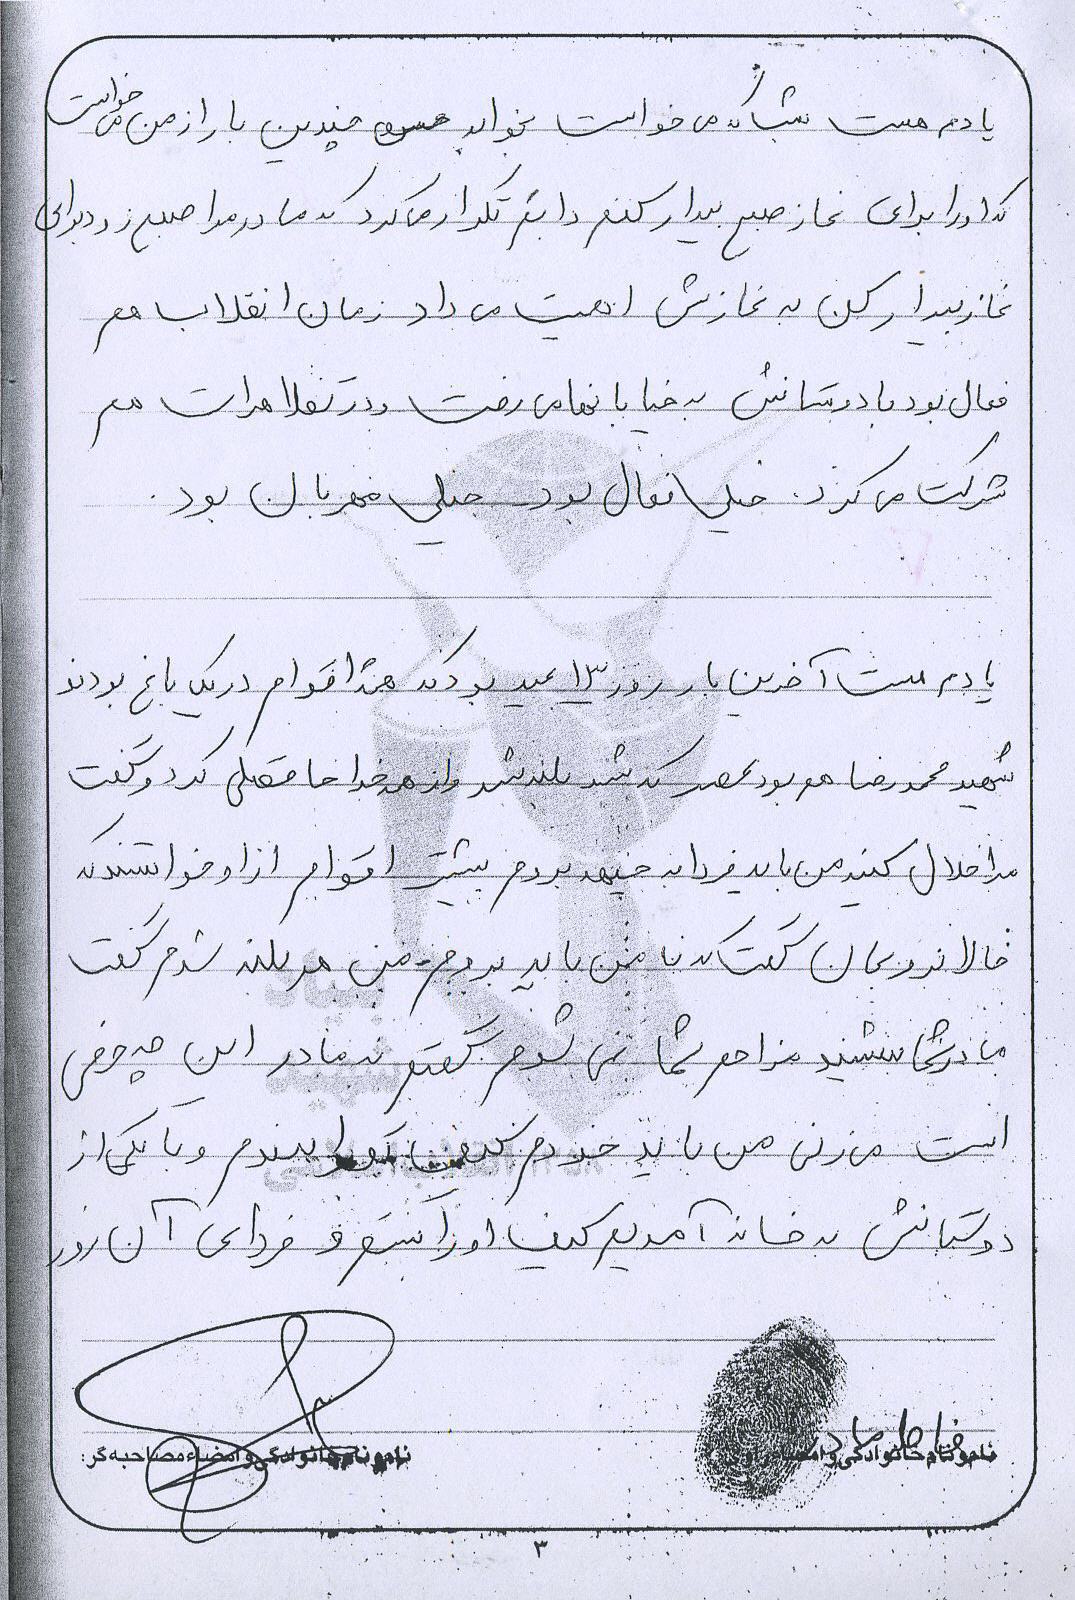 یادم هست شبها که می خواست بخوابد چندین بار از من می خواست
که او را برای نماز صبح بیدار کنم دائم تکرار می کرد که مادر مرا صبح زود برای
نماز بیدار کن به نمازش اهمیت می داد زمان انقلاب هم
فعال بود با دوستانش به خیابانها می رفت و در تظاهرات هم
شرکت می کرد. خیلی فعال بود خیلی مهربان بود.
یادم هست آخرین بار روز ۱۳ عید بود که همه اقوام در یک باغ بودند
شهید محمدرضا هم بود عصر که شد بلند شد و از همه خداحافظی کرد و گفت
مرا حلال کنید من باید فردا به جبهه بروم بیشتر اقوام از او خواستند که
حالا نرو بمان گفت که نه من باید بروم من هم بلند شدم گفت
مادر شما بنشینید مزاحم شما نمی شوم گفتم نه مادر این چه حرفی
است می زنی من باید خودم کیفت را ببندم و با یکی از
دوستانش به خانه آمدیم کیف او را بستم و فردای آن روز
بنیاد
شهید
انقلاب اسلامی
نام و نام خانوادگی و امضاء
نام و نام خانوادگی و امضاء مصاحبه گر:
۳